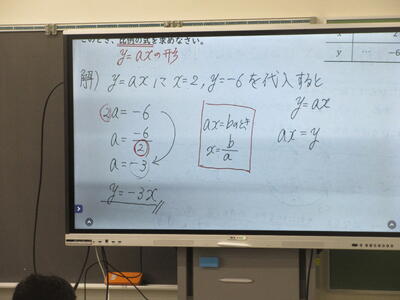 このとき、比例の式を求めなさい。
y=axの形
解) y=axにx=2, y=-6を代入すると
2a=-6
a=-6/2
a=-3
y=-3x
ax=bのとき
x=b/a
y=ax
ax=y
x … 2
y … -6